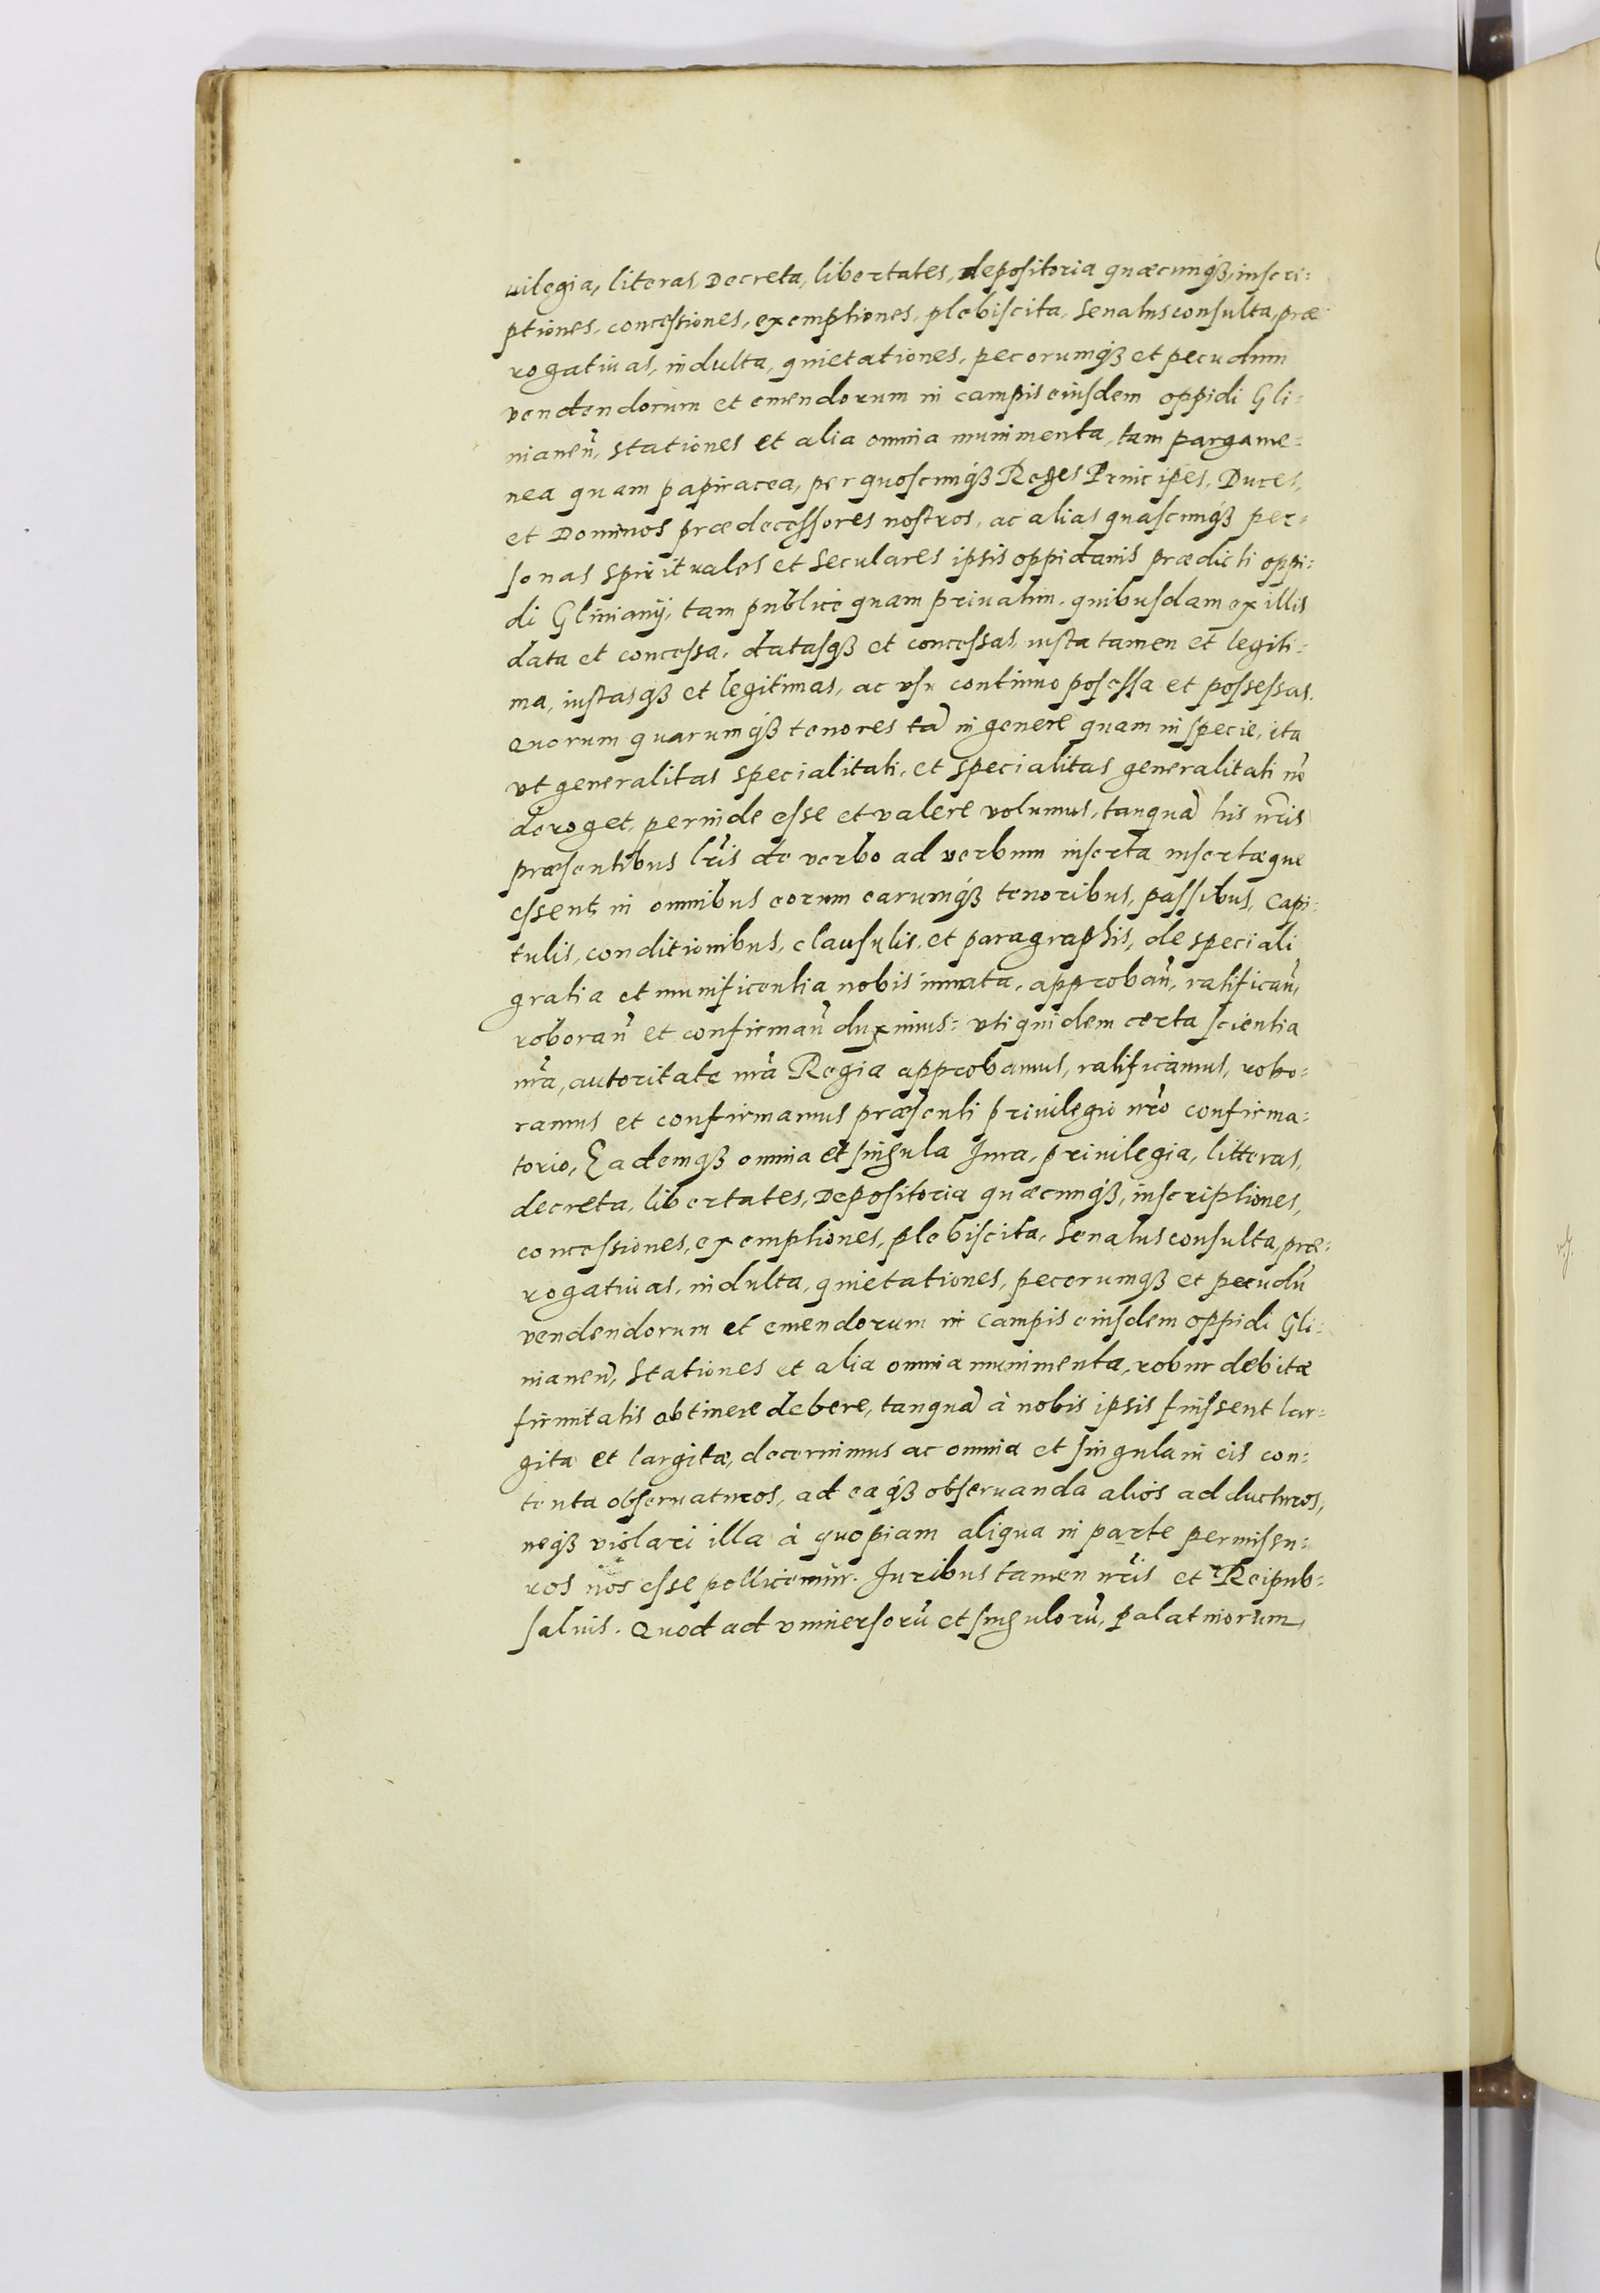 uilegia, literas, Decreta, libertates, depositoria quæcunq3, inscri=
ptiones, concessiones, exemptiones, plebiscita, Senatusconsulta, præ
rogatiuas, indulta, quietationes, pecorumq3 et pecudum
vendendorum et emendorum in campis eiusdem oppidi Gli=
nianen̄, stationes et alia omnia munimenta, tam pargame=
nea quam papiracea, per quoscunq3 Reges Principes, Duces,
et Dominos prædecessores nostros, ac alias quascunq3 per=
sonas spirituales et seculares ipsis oppidanis prædicti oppi=
di Glinianÿ, tam publice quam priuatim, quibusdam ex illis
data et concessa, datasq3 et concessas, iusta tamen et legiti=
ma, iustasq3 et legitimas, ac vsu continuo posessa et possessas.
Quorum quarumq3 tenores tā in genere quam in specie, ita
vt generalitas specialitati, et specialitas generalitati nō
deroget, perinde esse et valere volumus, tanquā his nr̄is
præsentibus lr̄is de verbo ad verbum inserta insertæque
essent, in omnibus eorum earumq3 tenoribus, passibus, Capi=
tulis, conditionibus, clausulis, et paragraphis, de speciali
gratia et munificentia nobis innata, approban̄, ratifican̄,
roboran̄ et confirman̄ duximus: vti quidem certa scientia
nr̄a, autoritate nr̄a Regia approbamus, ratificamus, robo=
ramus et confirmamus præsenti priuilegio nr̄o confirma=
torio, Eademq3 omnia et singula Jura, priuilegia, litteras,
decreta, libertates, Depositoria quæcunq3, inscriptiones,
concessiones, exemptiones, plebiscita, Senatusconsulta, præ=
rogatiuas, indulta, quietationes, pecorumq3 et pecudū
vendendorum et emendorum in Campis eiusdem oppidi Gli=
nianen̄, Stationes et alia omnia munimenta, robur debitæ
firmitatis obtinere debere, tanquā à nobis ipsis fuissent lar=
gita et largitæ, decernimus ac omnia et singula in eis con=
tenta obseruaturos, ad eaq3 obseruanda alios adducturos,
neq3 violari illa à quopiam aliqua in parte permissu=
ros nos esse pollicemur. Juribus tamen nr̄is et Reipub=
saluis. Quod ad vniuersorū et singulorū, palatinorum,